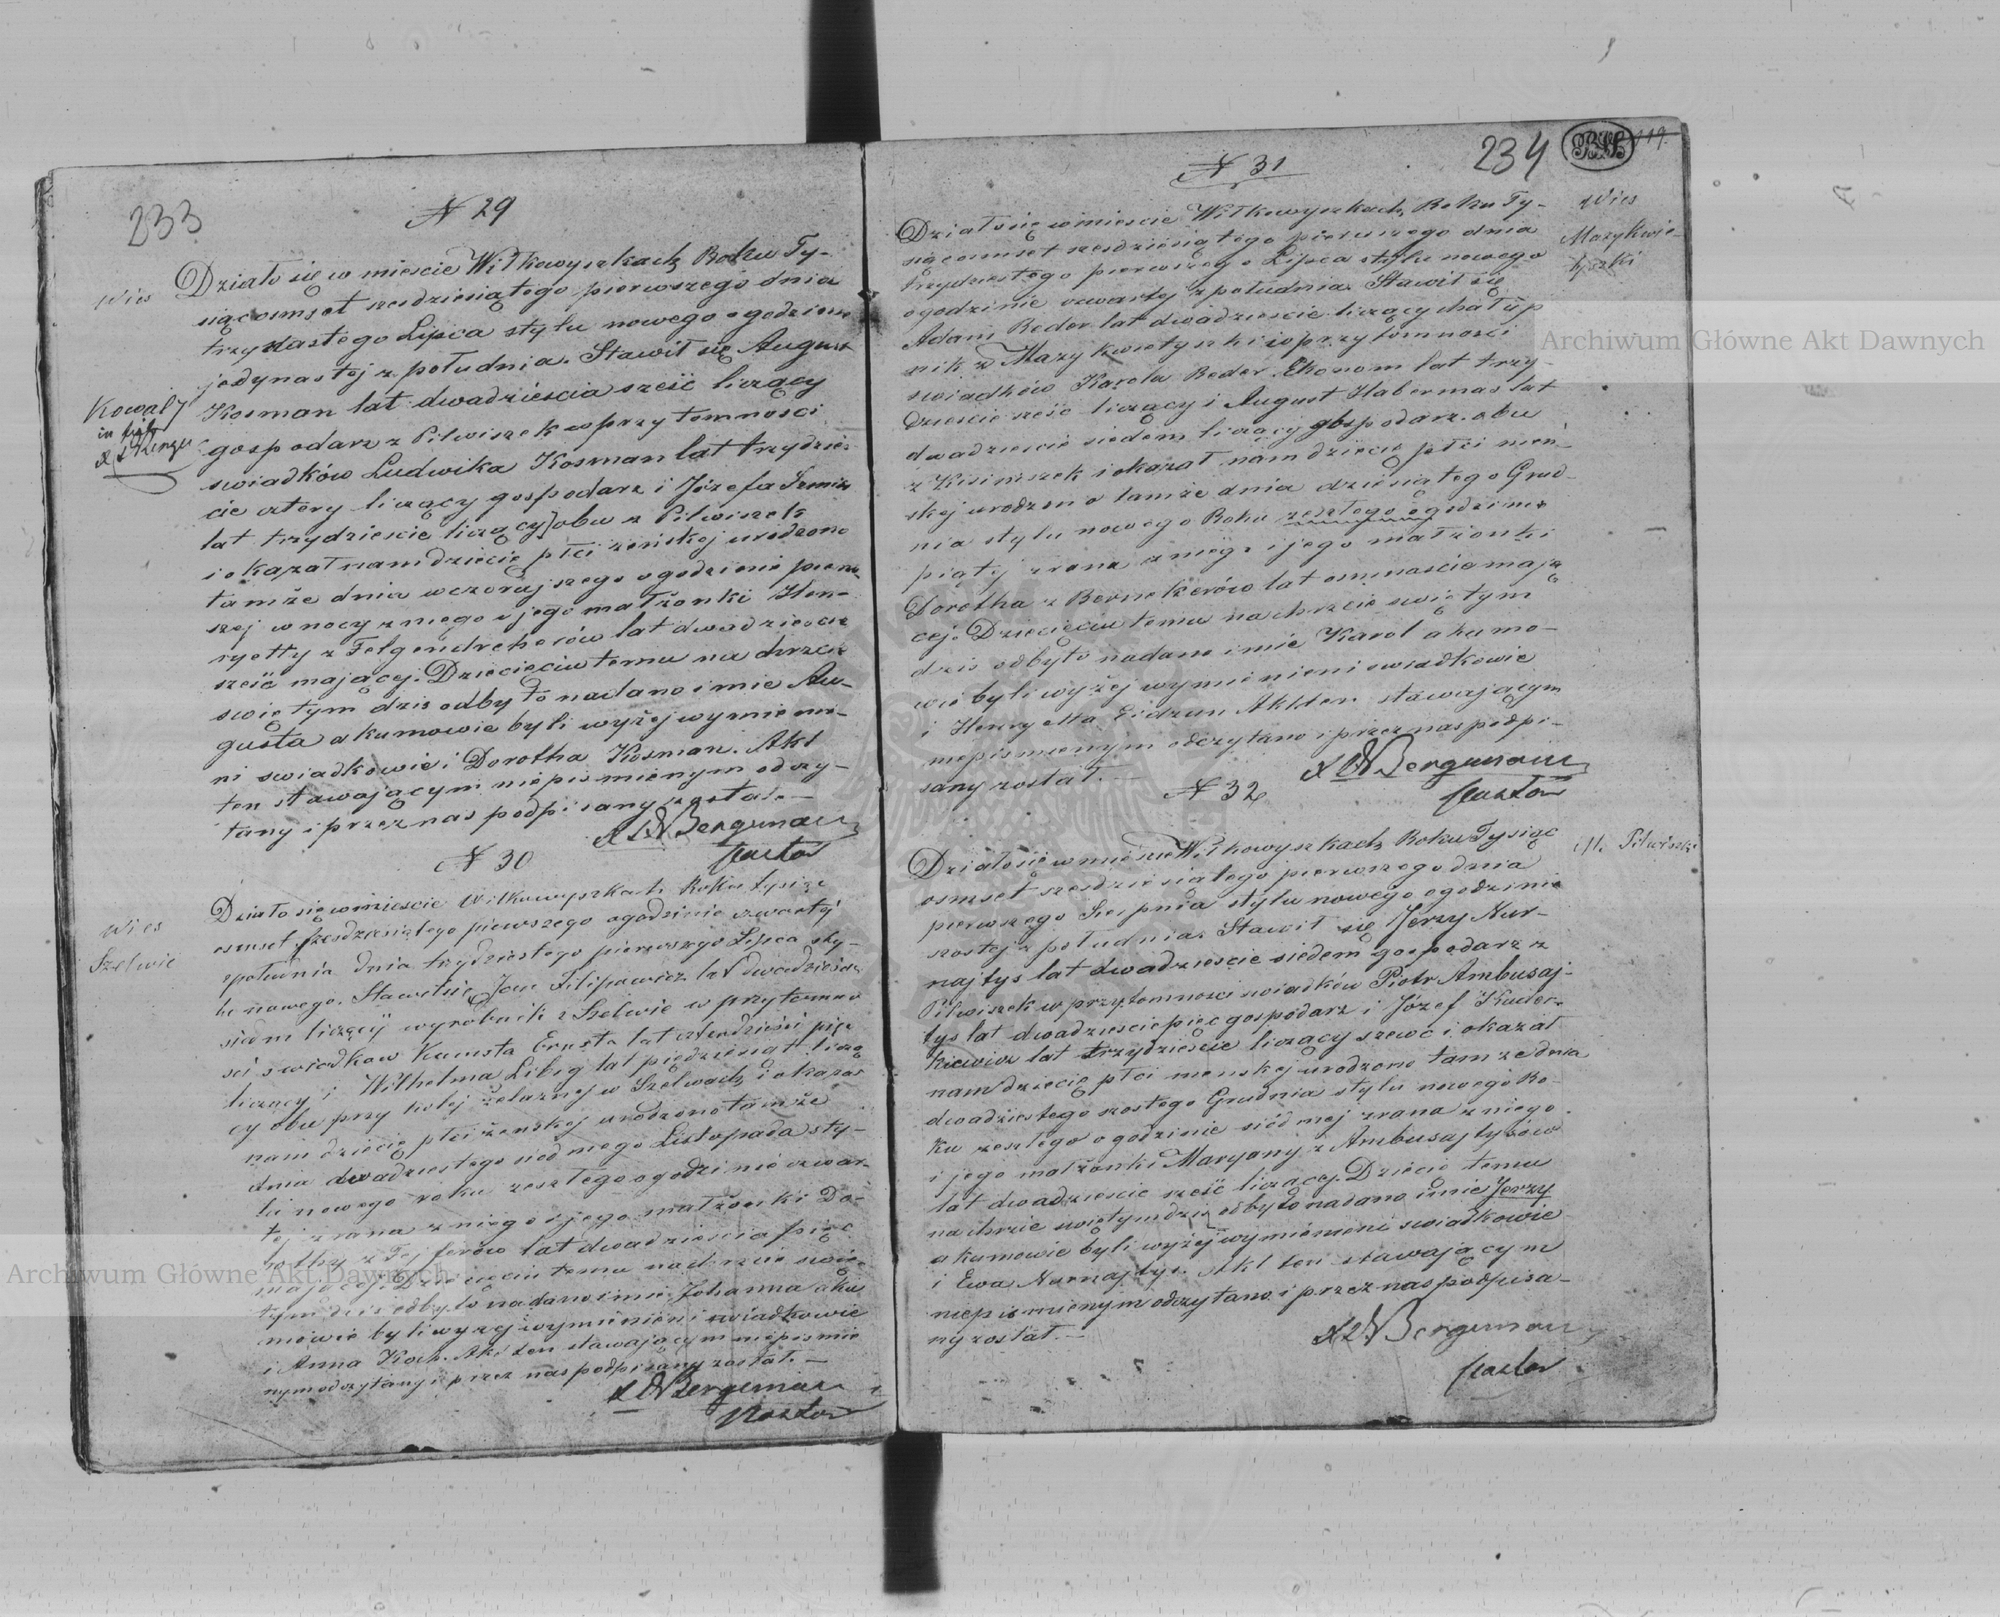 233
N 29
Wies
Działo się w miescie Wiłkowyszkach Roku Ty-
siącosmset szesdziesiątego pierwszego dnia
trzynastego Lipca stylu nowego o godzinie
jedynastej z południa. Stawił się August
Kosman lat dwadzieścia sześć liczący
Kowal
gospodarz z Pilwiszek w przytomności
swiadków Ludwika Kosman lat trzydzie-
ście cztery liczący gospodarz i Józefa
lat trzydzieście liczący obu z Pilwiszek
i okazał nam dziecie płci żeńskiej urodzone
tamże dnia wczorajszego o godzinie pierw-
szej w nocy z niego i jego małżonki Hen-
ryetty z Felgendreherów lat dwadzieście
sześć mającej. Dziecieciu temu na chrzcie
swiętym dzis odbyto nadano imie Au-
gusta a kumowie byli wyżej wymienie-
ni swiadkowie i Dorotha Kosman. Akt
ten stawającym niepismienym odczy-
tany i przez nas podpisany został.—
X Bergemann
Pastor
N 30
Wies
Szelwie
Działo się w miescie Wilkowyszkach Roku Tysiąc
osmset szesdziesiątego pierwszego o godzinie czwartej
z południa dnia trzydziestego pierwszego Lipca sty-
lu nowego. Stawił się Jan Filipowicz lat dwadzieścia
siedm liczący wyrobnik z Szelwie w przytomno
sci swiadkow Ernsta lat czterdzieści pięć
liczący i Wilhelma Libig lat piędziesiąt liczą
cy obu przy kolej żelaznej w Szelwach i okazał
nam dziecię płci żenskej urodzono tamże
dnia dwadziestego siodmego Listopada sty-
lu nowego roku zeszłego o godzinie czwar-
tej z rana z niego i jego małżonki Do-
rothy z lat dwadzieścia pięc
mającej. Dziecieciu temu na chrzcie swię-
tym dzis odbyto nadano imie Johanna a ku
mowie byli wyzej wymienieni swiadkowie
i Anna Koch. Akt ten stawającym niepismie
nym odczytany i przez nas podpisany został.—
X Bergemann
Pastor
234
119
N 31
Wies
Mazykwie-
tyszki
Działo się w miescie Wiłkowyszkach Roku Ty-
siącosmset szesdziesiątego pierwszego dnia
trzydziestego pierwszego Lipca stylu nowego
o godzinie czwartej z południa. Stawił się
Adam Reder lat dwadzieście liczący chałup
nik z Mazykwietyszki i w przytomnosci
swiadków Karola Reder Ekonom lat trzy-
dzieście sześc liczący i August Habermas lat
dwadzieście siedem liczący gospodarz obu
z i okazał nam dziecię płci męń-
skej urodzono tamże dnia dziesiątego Grud-
nia stylu nowego Roku zeszłego o godzinie
piątej z rana z niego i jego małżonki
Dorotha z Bernekerów lat osmnascie mają
cej. Dziecieciu temu na chrzcie swiętym
dzis odbyto nadano imie Karol a kumo-
wie byli wyżej wymienieni swiadkowie
i Henryetta Akt ten stawającym
niepismienym odczytano i przez nas podpi-
sany został.—
X Bergemann
Pastor
N 32
M. Pilwiszki
Działo się w miescie Wiłkowyszkach Roku Tysiąc
osmset szesdziesiątego pierwszego dnia
pierwszego Sierpnia stylu nowego o godzinie
szostej z południa. Stawił się Jerzy Nur-
najtys lat dwadzieście siedem gospodarz z
Pilwiszek w przytomnosci swiadków Piotr Ambusaj-
tys lat dwadziescie pięc gospodarz i Józef Kuder-
kiewicz lat trzydziescie liczący szewc i okazał
nam dziecię płci menskej urodzono tamze dnia
dwadziestego szostego Grudnia stylu nowego Ro-
ku zeszłego o godzinie siódmej z rana z niego
i jego małżonki Maryany z Ambusajtysów
lat dwadzieście sześć liczącej. Dziecie temu
na chrzcie swiętym dziś odbyto nadano imie Jerzy
a kumowie byli wyżej wymienieni swiadkowie
i Ewa Nurnajtys. Akt ten stawającym
niepismienym odczytano i przez nas podpisa-
ny został.—
X Bergemann
Pastor
Archiwum Główne Akt Dawnych
Archiwum Główne Akt Dawnych